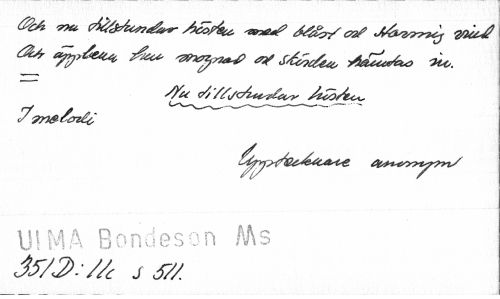 Och nu tillstundar hösten med blåst och stormig vind
Och äpplena ha mognad och skörden hämtas in.
Nu tillstundar hösten
I melodi
Upptecknare anonym
ULMA Bondeson Ms
351 D: 11c s 511.